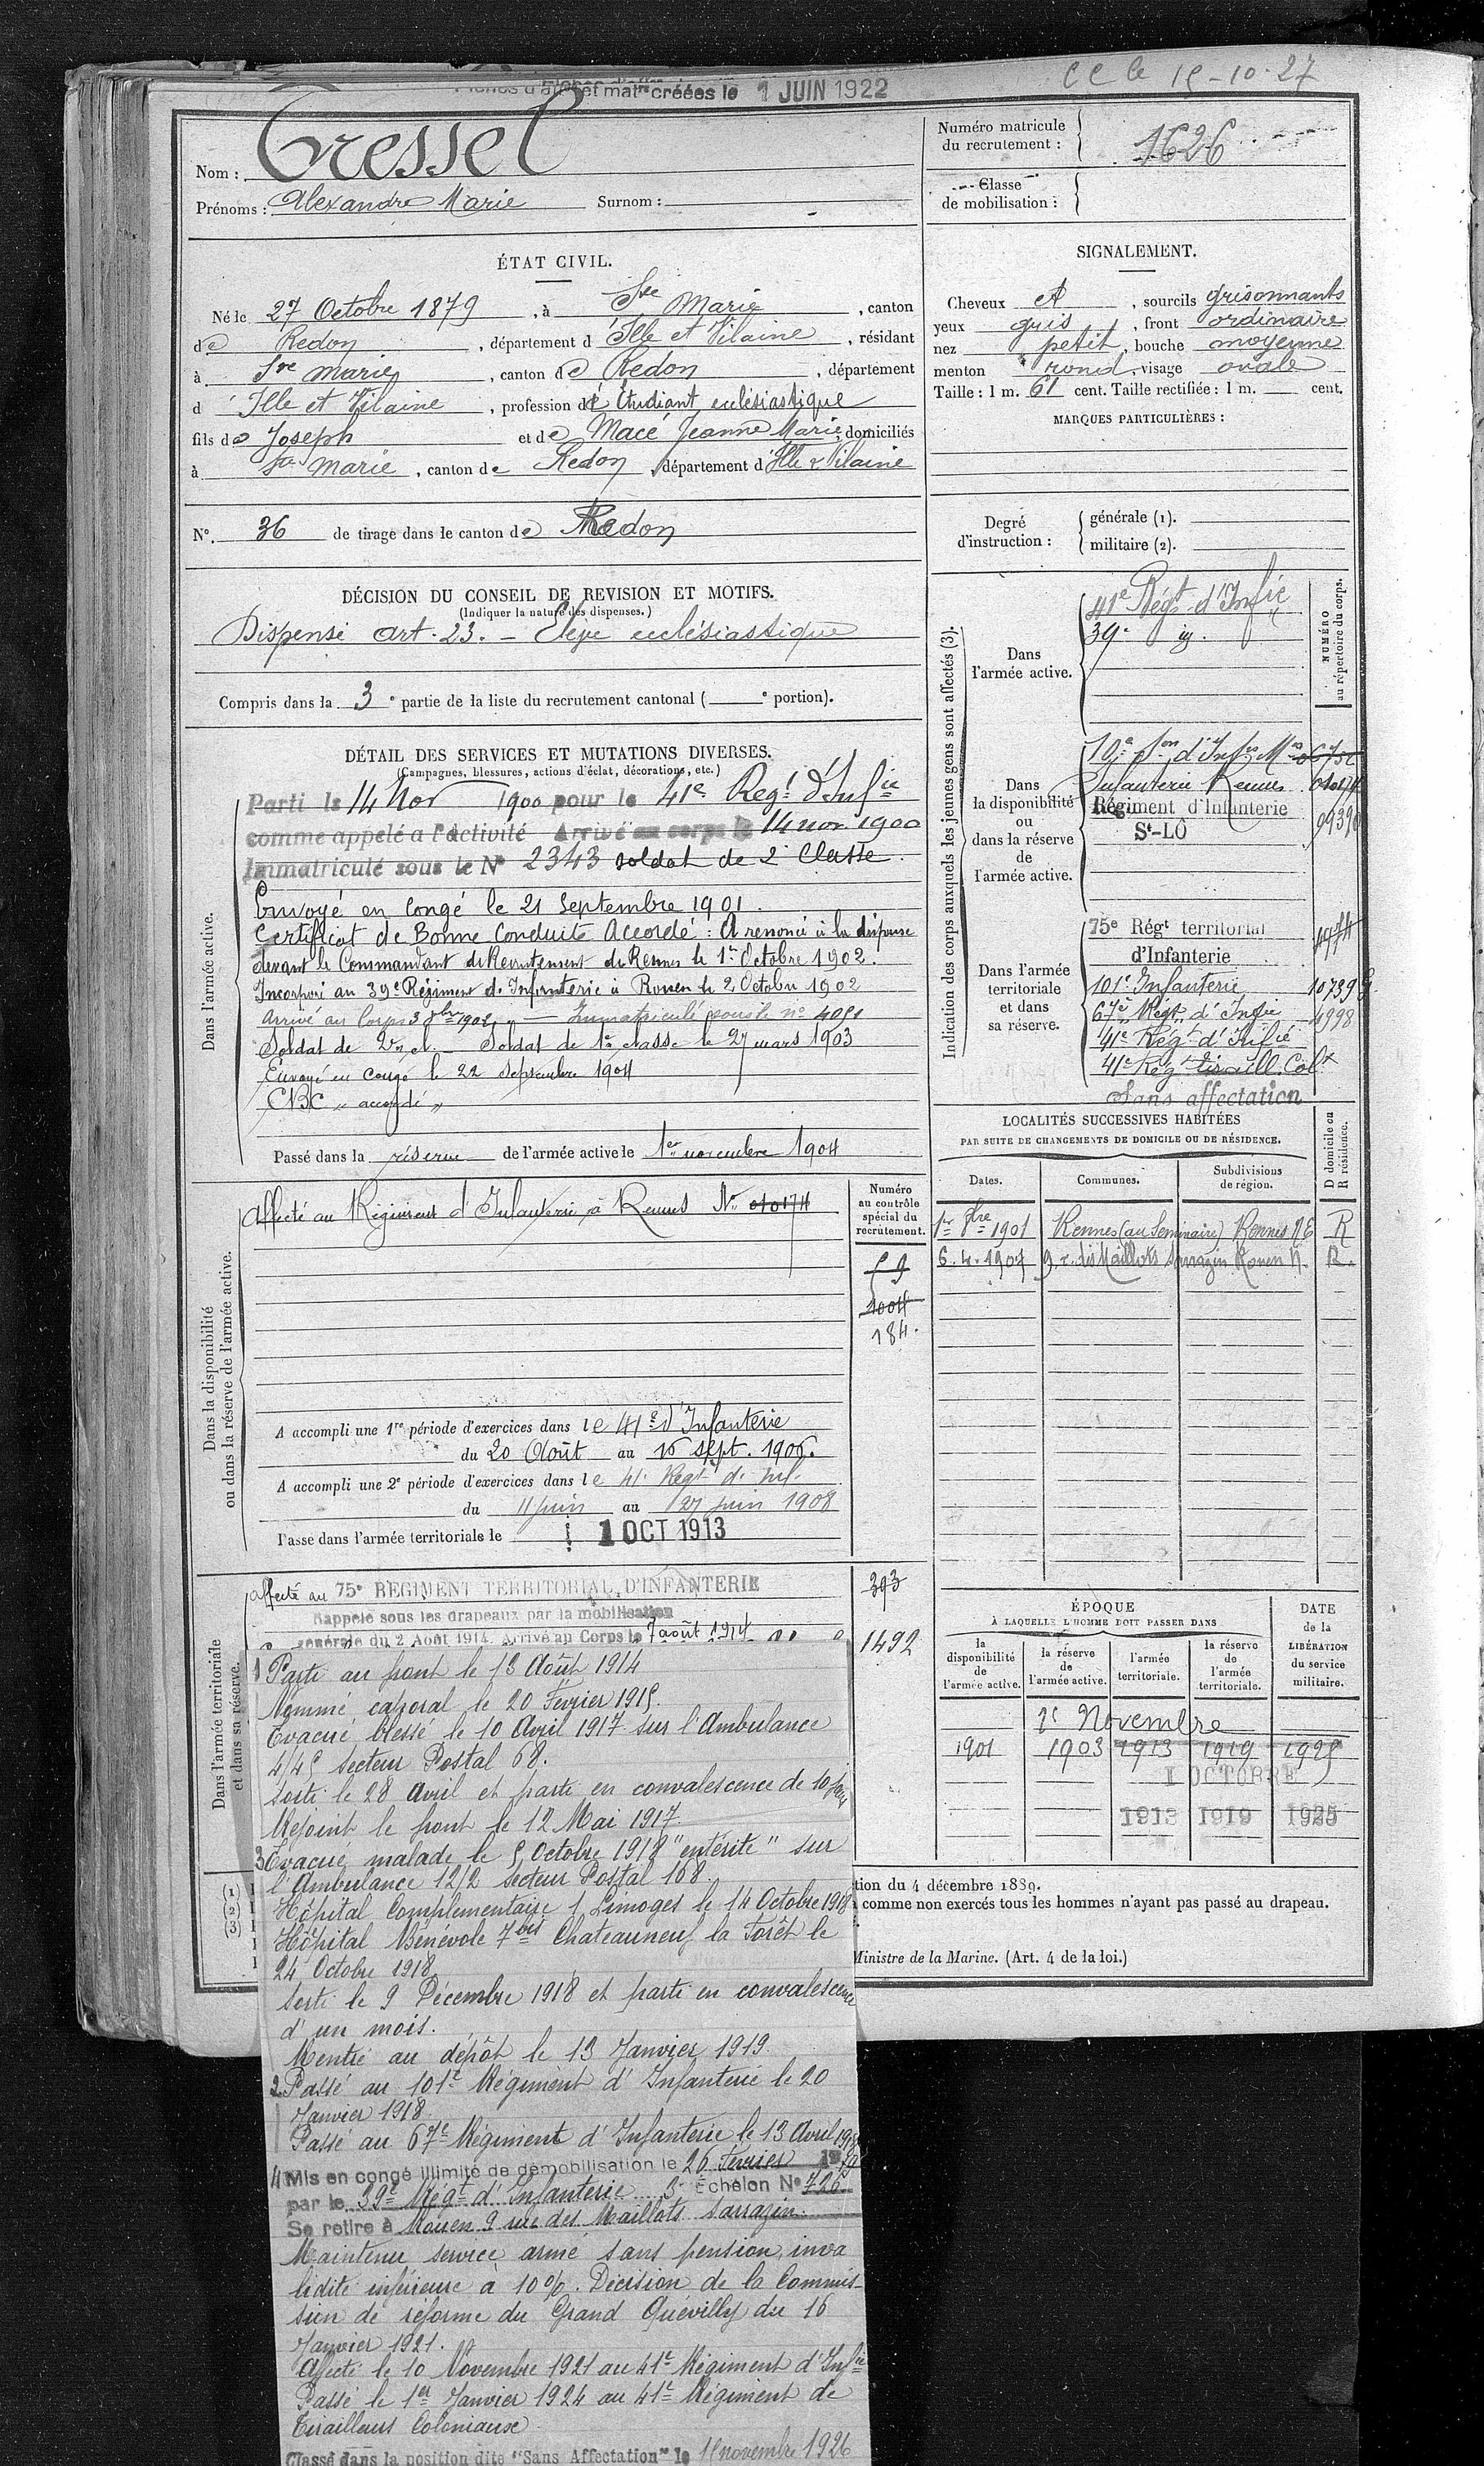 CC le 15-10-27
créées le 1 JUIN 1922
Nom : Tressel
Prénoms : Alexandre Marie Surnom :
Numéro matricule du recrutement : 1626
Classe de mobilisation :
ÉTAT CIVIL.
Né le 27 Octobre 1879, à Ste Marie, canton
de Redon, département d Ille et Vilaine, résidant
à Ste Marie, canton de Redon, département
d Ille et Vilaine, profession d Étudiant ecclésiastique
fils de Joseph et de Macé Jeanne Marie, domiciliés
à Ste Marie, canton de Redon, département d Ille & Vilaine
N°. 36 de tirage dans le canton de Redon
DÉCISION DU CONSEIL DE REVISION ET MOTIFS.
(Indiquer la nature des dispenses.)
Dispensé art. 23. - Élève ecclésiastique
Compris dans la 3e partie de la liste du recrutement cantonal ( e portion).
SIGNALEMENT.
Cheveux , sourcils grisonnants
yeux gris, front ordinaire
nez petit, bouche moyenne
menton rond, visage ovale
Taille : 1 m. 61 cent. Taille rectifiée : 1 m. cent.
MARQUES PARTICULIÈRES :
Degré d'instruction :
générale (1).
militaire (2).
DÉTAIL DES SERVICES ET MUTATIONS DIVERSES.
(Campagnes, blessures, actions d'éclat, décorations, etc.)
Dans l'armée active.
Parti le 14 Nov 1900 pour le 41e Regt d'Infie
comme appelé a l'activité Arrivé au corps le 14 nov. 1900
Immatriculé sous le N° 2343 soldat de 2e Classe.
Envoyé en Congé le 21 Septembre 1901.
Certificat de Bonne Conduite Accordé : A renoncé à la dispense
devant le Commandant de Recrutement de Rennes le 1er Octobre 1902.
Incorporé au 39e Régiment d'Infanterie à Rouen le 2 Octobre 1902
Arrivé au Corps 3 8bre 1902, Immatriculé sous le n° 4051
Soldat de 2e cl. Soldat de 1e classe le 27 mars 1903
Envoyé en congé le 22 septembre 1904
CBC " accordé "
Passé dans la réserve de l'armée active le 1er novembre 1904
Indication des corps auxquels les jeunes gens sont affectés (3).
NUMÉRO au répertoire du corps.
Dans l'armée active.
41e Régt d'Infie
39e
Dans la disponibilité ou dans la réserve de l'armée active.
Infanterie Rennes
Régiment d'Infanterie
St-LÔ
Dans l'armée territoriale et dans sa réserve.
75e Régt territorial
d'Infanterie
101e Infanterie 10739
67e Régt d'Infie 4998
41e Régt d'Infie
41e Rég tiraill. Colx
Sans affectation
Dans la disponibilité ou dans la réserve de l'armée active.
Affecté au Régiment d'Infanterie à Rennes N° 010174
Numéro au contrôle spécial du recrutement.
59
1004
184.
A accompli une 1re période d'exercices dans le 41e d'Infanterie
du 20 Août au 16 sept. 1906.
A accompli une 2e période d'exercices dans le 41e Regt d'Inf.
du 11 juin au 27 juin 1908
Passé dans l'armée territoriale le 1 OCT 1913
LOCALITÉS SUCCESSIVES HABITÉES
PAR SUITE DE CHANGEMENTS DE DOMICILE OU DE RÉSIDENCE.
Dates. Communes. Subdivisions de région. D domicile ou R résidence.
1er 8bre 1901 Rennes (au Séminaire) Rennes R
6.4.1907 9 r. des Maillots Sarrazin Rouen N. R.
Dans l'armée territoriale et dans sa réserve.
Affecté au 75e REGIMENT TERRITORIAL D'INFANTERIE
393
Rappelé sous les drapeaux par la mobilisation
générale du 2 Août 1914. Arrivé au Corps le 7 août 1914
1492
1 Parti au front le 13 Août 1914
Nommé caporal le 20 Février 1915.
Évacué blessé le 10 Avril 1917 sur l'Ambulance
4/45 secteur Postal 68.
sorti le 28 avril et parti en convalescence de 10 jours
Rejoint le front le 12 Mai 1917.
3 Évacué malade le 5 Octobre 1918 "entérite" sur
l'Ambulance 12/2 secteur Postal 168.
Hôpital Complémentaire 1 Limoges le 14 Octobre 1918
Hôpital Bénévole 7bis Chateauneuf la Forêt le
24 Octobre 1918
sorti le 9 Décembre 1918 et parti en convalescence
d'un mois.
Rentré au dépôt le 13 Janvier 1919.
2 Passé au 101e Régiment d'Infanterie le 20
Janvier 1918
Passé au 67e Régiment d'Infanterie le 13 Avril 1918
4 Mis en congé illimité de démobilisation le 26 Février 1919
par le 39e Régt d'Infanterie 3e Echelon N° 726
Se retire à Rouen 9 rue des Maillots Sarrazin.
Maintenu service armé sans pension, inva
lidité inférieure à 10%. Décision de la Commis-
sion de réforme du Grand Quevilly du 16
Janvier 1921.
Affecté le 10 Novembre 1921 au 41e Régiment d'Infie
Passé le 1er Janvier 1924 au 41e Régiment de
Tirailleurs Coloniaux
Classé dans la position dite "Sans Affectation" le 15 novembre 1926
ÉPOQUE
À LAQUELLE L'HOMME DOIT PASSER DANS
la disponibilité de l'armée active.
la réserve de l'armée active.
l'armée territoriale.
la réserve de l'armée territoriale.
DATE de la LIBÉRATION du service militaire.
1er Novembre
1901 1903 1913 1919 1925
1 OCTOBRE
1913 1919 1925
(1)
(2)
(3)
tion du 4 décembre 1889.
comme non exercés tous les hommes n'ayant pas passé au drapeau.
Ministre de la Marine. (Art. 4 de la loi.)